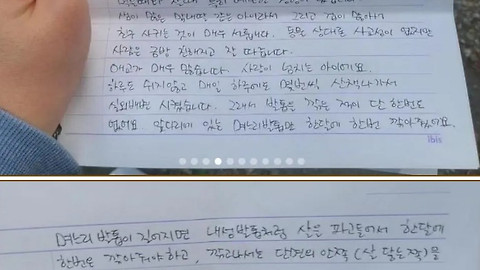 성이 많은 믹스견 같은 아이라서 그리고 겁이 많아서
친구 사귀는 것이 매우 서툽니다. 모든 상대로 사교성이 없지만
사람은 금방 친해지고 잘 따릅니다.
애교가 매우 많습니다. 사랑이 넘치는 아이에요.
하루도 쉬지않고 매일 하루에도 몇번씩 산책나가서
실외배변 시켰습니다. 그래서 발톱은 깎은 적이 단 한번도
없어요 앞다리에 있는 며느리발톱만 한달에 한번 깎아줬어요.
며느리 발톱이 길어지면 내성발톱처럼 살을 파고들어서 한달에
한번은 깎아줘야하고, 깎고나서는 단면의 안쪽(살 닿는쪽)을